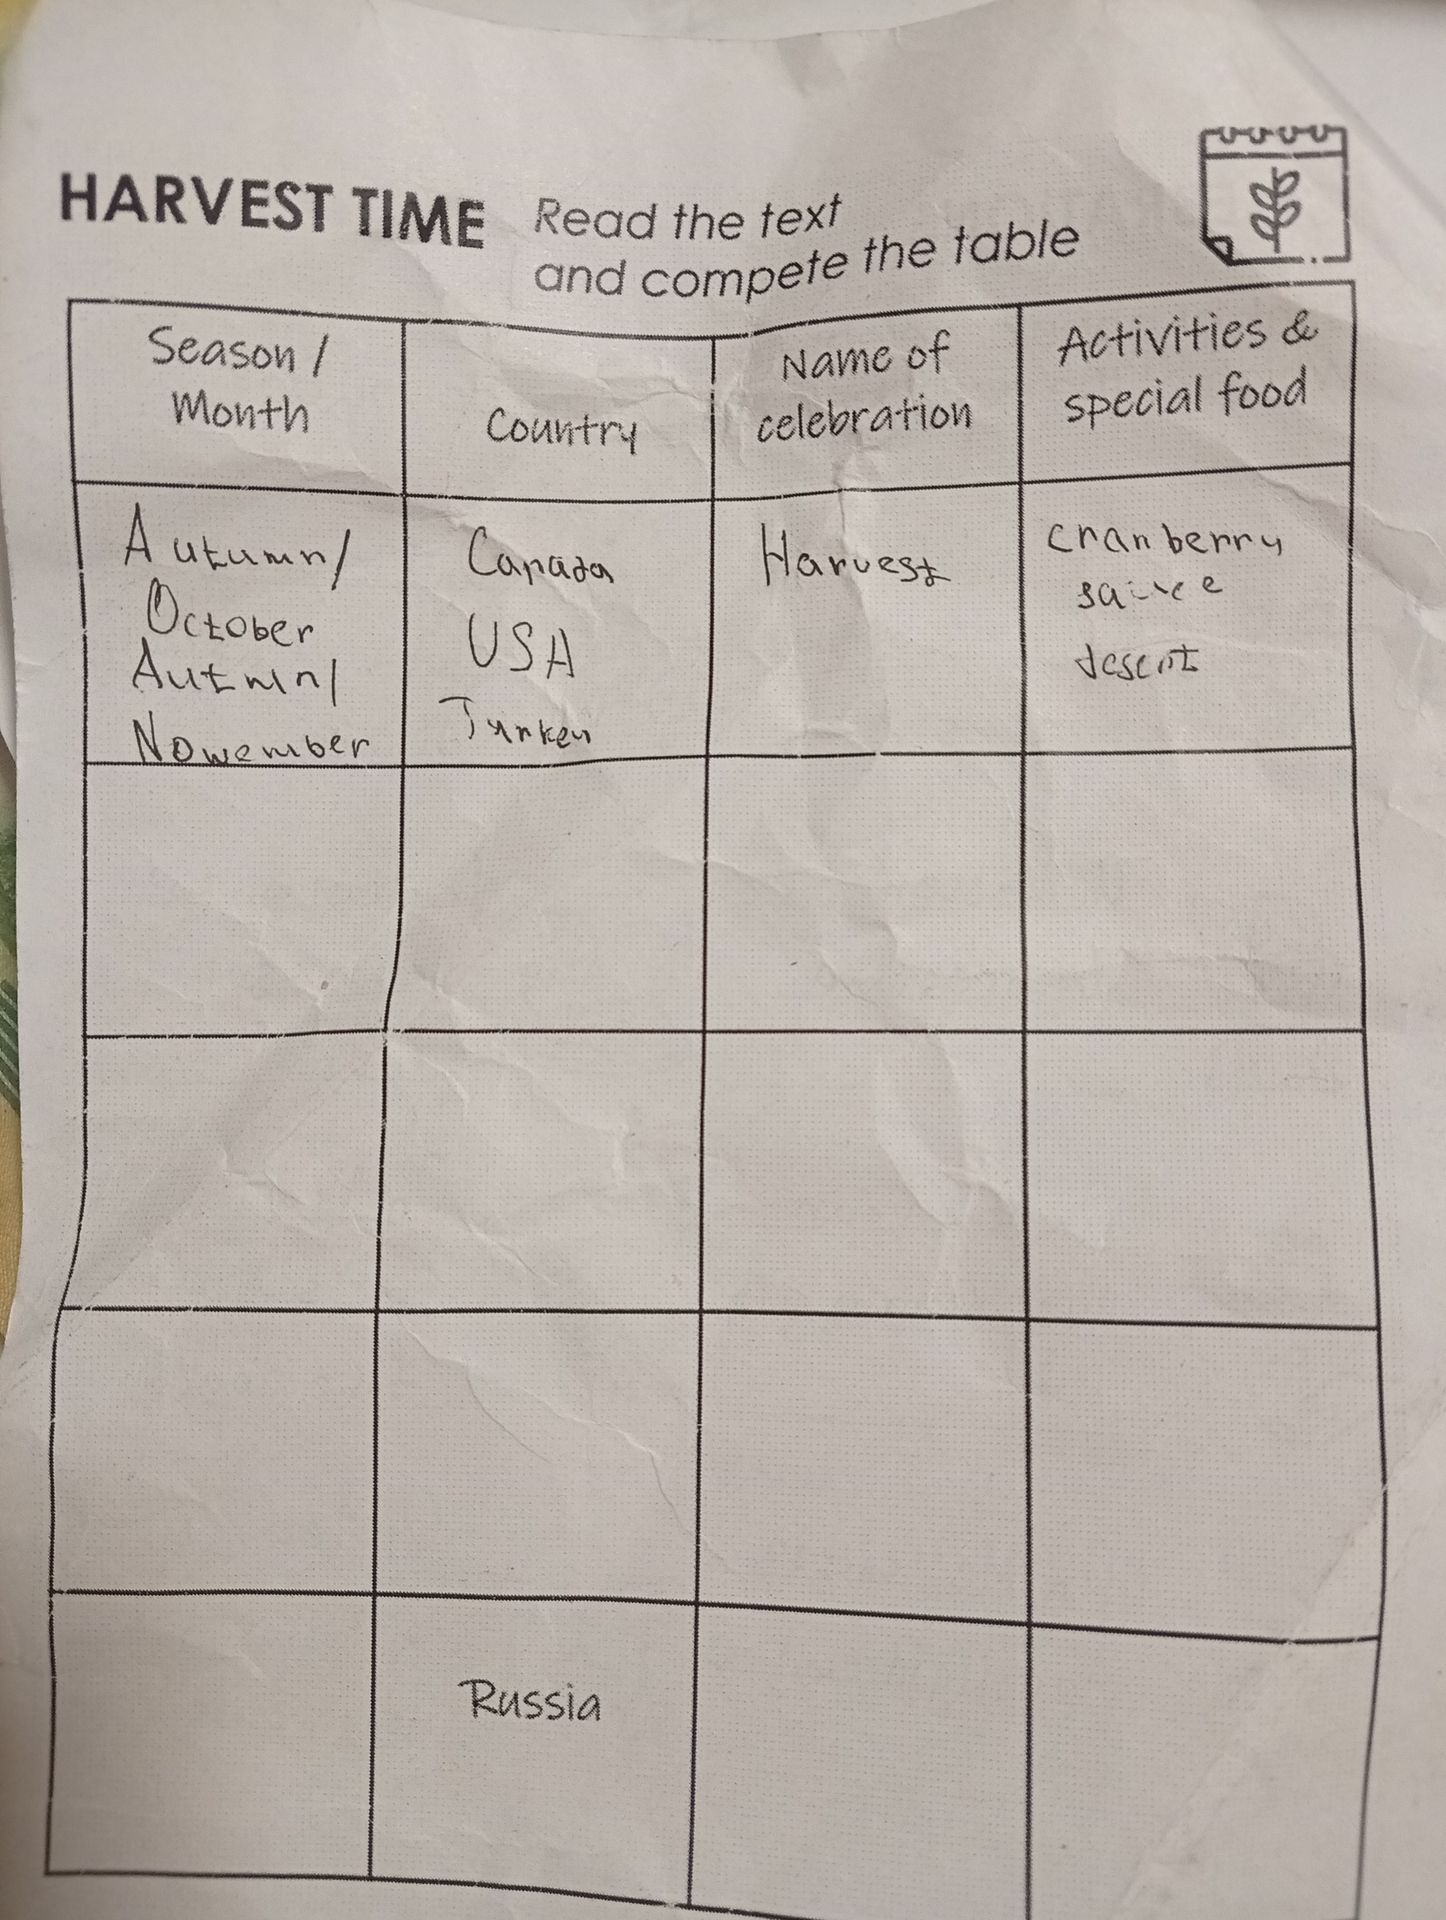 HARVEST TIME
Read the text
and compete the table
Season /
Month
Country
Name of
celebration
Activities &
special food
Autumn/
October
Autmn/
Nowember
Canada
USA
Turkey
Harvest
cranberry
sauce
desert
Russia